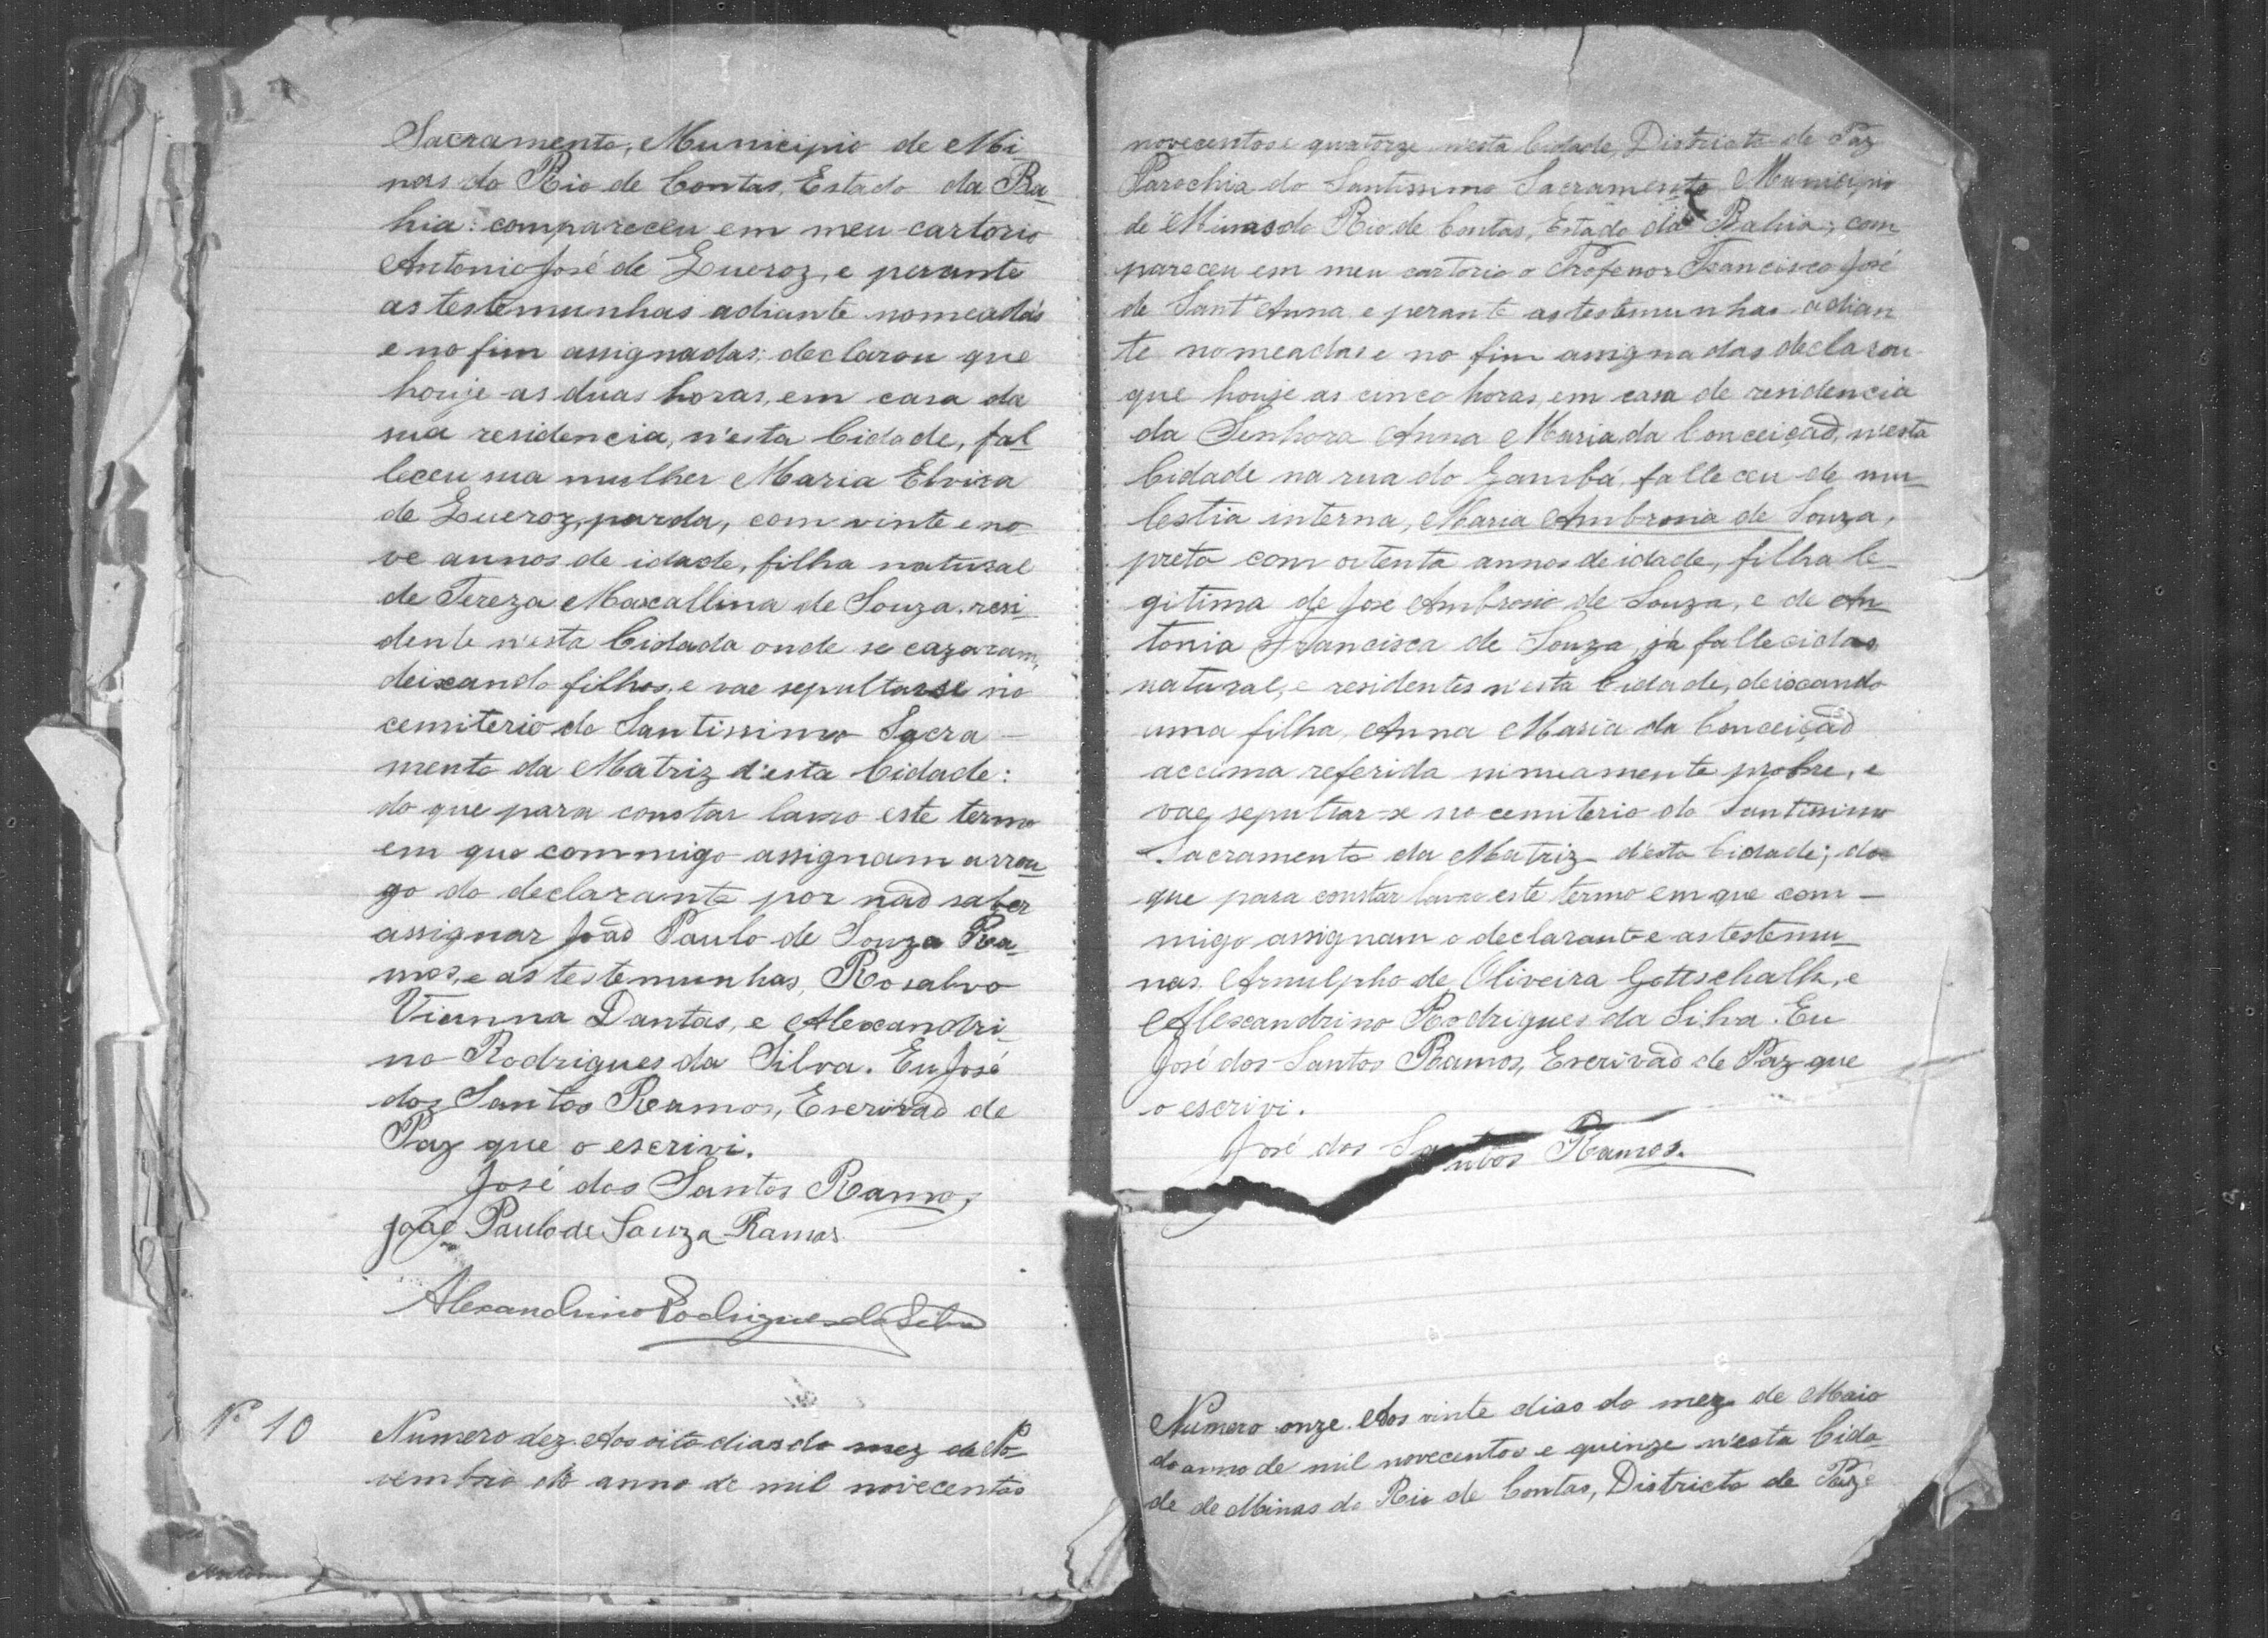 Sacramento, Municipio de Mi-
nas do Rio de Contas, Estado da Ba-
hia: compareceu em meu cartorio
Antonio José de Queroz, e perante
as testemunhas adiante nomeadas
e no fim assignadas; declarou que
houje as duas horas, em casa da
sua residencia, n'esta Cidade, fal-
leceu sua mulher Maria Elvira
de Queroz, parda, com vinte e no-
ve annos de idade, filha natural
de Tereza Marcallina de Souza, resi-
dente n'esta Cidada onde se cazaram,
deixando filhos, e vae sepultarse no
cemiterio do Santissimo Sacra-
mento da Matriz d'esta Cidade:
do que para constar lavro este termo
em que commigo assignam arrou-
go do declarante por não saber
assignar João Paulo de Souza Ra-
mos, e as testemunhas, Rosalvo
Vianna Dantas, e Alexandri-
no Rodrigues da Silva. Eu José
dos Santos Ramos, Escrivão de
Paz que o escrivi.
José dos Santos Ramos
João Paulo de Souza Ramos
Alexandrino Rodrigues da Silva
Nº 10
Numero dez. Aos oito dias do mez de No-
vembro do anno de mil novecentos
novecentos e quatorze n'esta Cidade, Districto de Paz
Parochia do Santissimo Sacramento Municipio
de Minas do Rio de Contas, Estado da Bahia; com
pareceu em meu cartorio o Professor Francisco José
de Sant'Anna e perante as testemunhas adian
te nomeadas e no fim assignadas declarou
que houje as cinco horas, em casa de residencia
da Senhora Anna Maria da Conceição, n'esta
Cidade na rua do Gambá, falleceu de mu-
lestia interna, Maria Ambrosia de Souza,
preta com oitenta annos de idade, filha le-
gitima de José Ambrosio de Souza, e de An-
tonia Francisca de Souza, já fallecidas
natural, e residentes n'esta Cidade, deixando
uma filha, Anna Maria da Conceição
accima referida nimiamente probre, e
vae sepultar-se no cemiterio do Santissimo
Sacramento da Matriz d'esta Cidade; do
que para constar lavro este termo em que com-
migo assignam o declarante e as testemu-
nas, Arnulpho de Oliveira Gottschalk, e
Alexandrino Rodrigues da Silva. Eu
José dos Santos Ramos, Escrivão de Paz que
o escrivi.
José dos Santos Ramos.
Numero onze. Aos vinte dias do mez de Maio
do anno de mil novecentos e quinze n'esta Cida-
de de Minas do Rio de Contas, Districto de Paz e